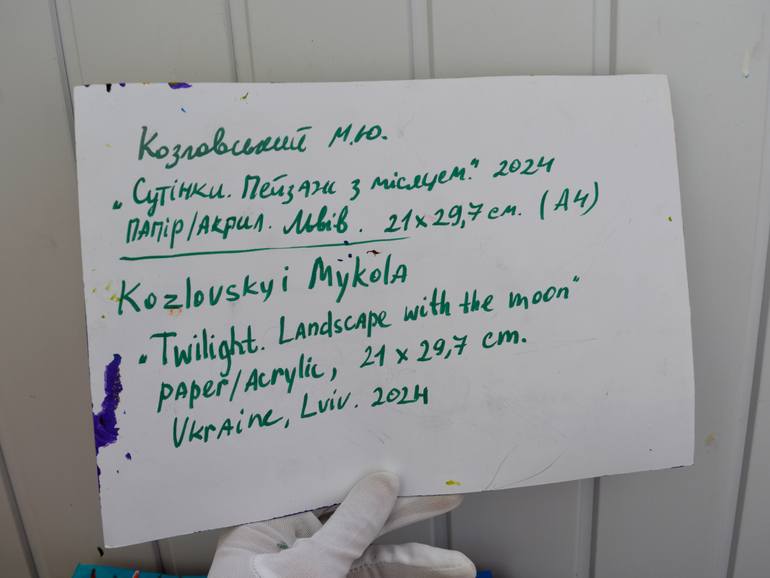 Козловський М.Ю.
„Сутінки. Пейзаж з місяцем." 2024
папір/Акрил. Львів. 21 x 29,7 см. (A4)
Kozlovskyi Mykola
„Twilight. Landscape with the moon"
paper/Acrylic, 21 x 29,7 cm.
Ukraine, Lviv. 2024